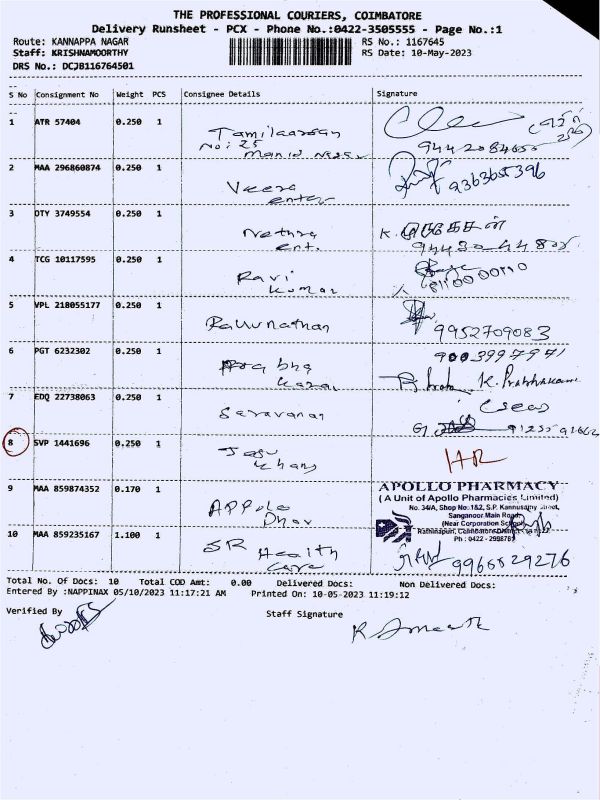 THE PROFESSIONAL COURIERS, COIMBATORE
Delivery Runsheet - PCX - Phone No.:0422-3505555 - Page No.:1
Route: KANNAPPA NAGAR RS No.: 1167645
Staff: KRISHNAMOORTHY RS Date: 10-May-2023
DRS No.: DCJB116764501
S No Consignment No Weight PCS Consignee Details Signature
1 ATR 57404 0.250 1 Tamilaarasan
No: 25
2 MAA 296860874 0.250 1 Veera
9363665396
3 DTY 3749554 0.250 1 Nethra
ent. K. முருகேசன்
4 TCG 10117595 0.250 1 Ravi
Kumar
5 VPL 218055177 0.250 1
9952709083
6 PGT 6232302 0.250 1 Prabha
Karan K. Prabhakaran
9003997971
7 EDQ 22738063 0.250 1 Saravanan
8 SVP 1441696 0.250 1
9 MAA 859874352 0.170 1 Appolo
APOLLO PHARMACY
( A Unit of Apollo Pharmacies Limited)
No. 34/A, Shop No: 1&2, S.P. Kannusamy Street,
Sanganoor Main Road,
(Near Corporation School)
Rathinapuri, Coimbatore
10 MAA 859235167 1.100 1 SR Health
Care 9966829276
Total No. Of Docs: 10 Total COD Amt: 0.00 Delivered Docs: Non Delivered Docs:
Entered By :NAPPINAX 05/10/2023 11:17:21 AM Printed On: 10-05-2023 11:19:12
Verified By Staff Signature